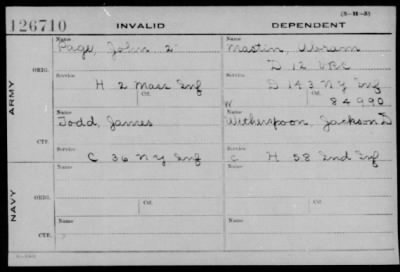 (3-11-3)
126710 INVALID DEPENDENT
Name Name
Page, John 2 Mastin, Abram
D 12 VRC
ORIG. Service Service
H 2 Mass Inf D 143 NY Inf
Ctf. Ctf.
W 84990
ARMY
Name Name
Todd, James Witherspoon, Jackson D
CTF. Service Service
C 36 NY Inf C H 58 Ind Inf
Name Name
ORIG.
Ctf. Ctf.
NAVY
Name Name
CTF.